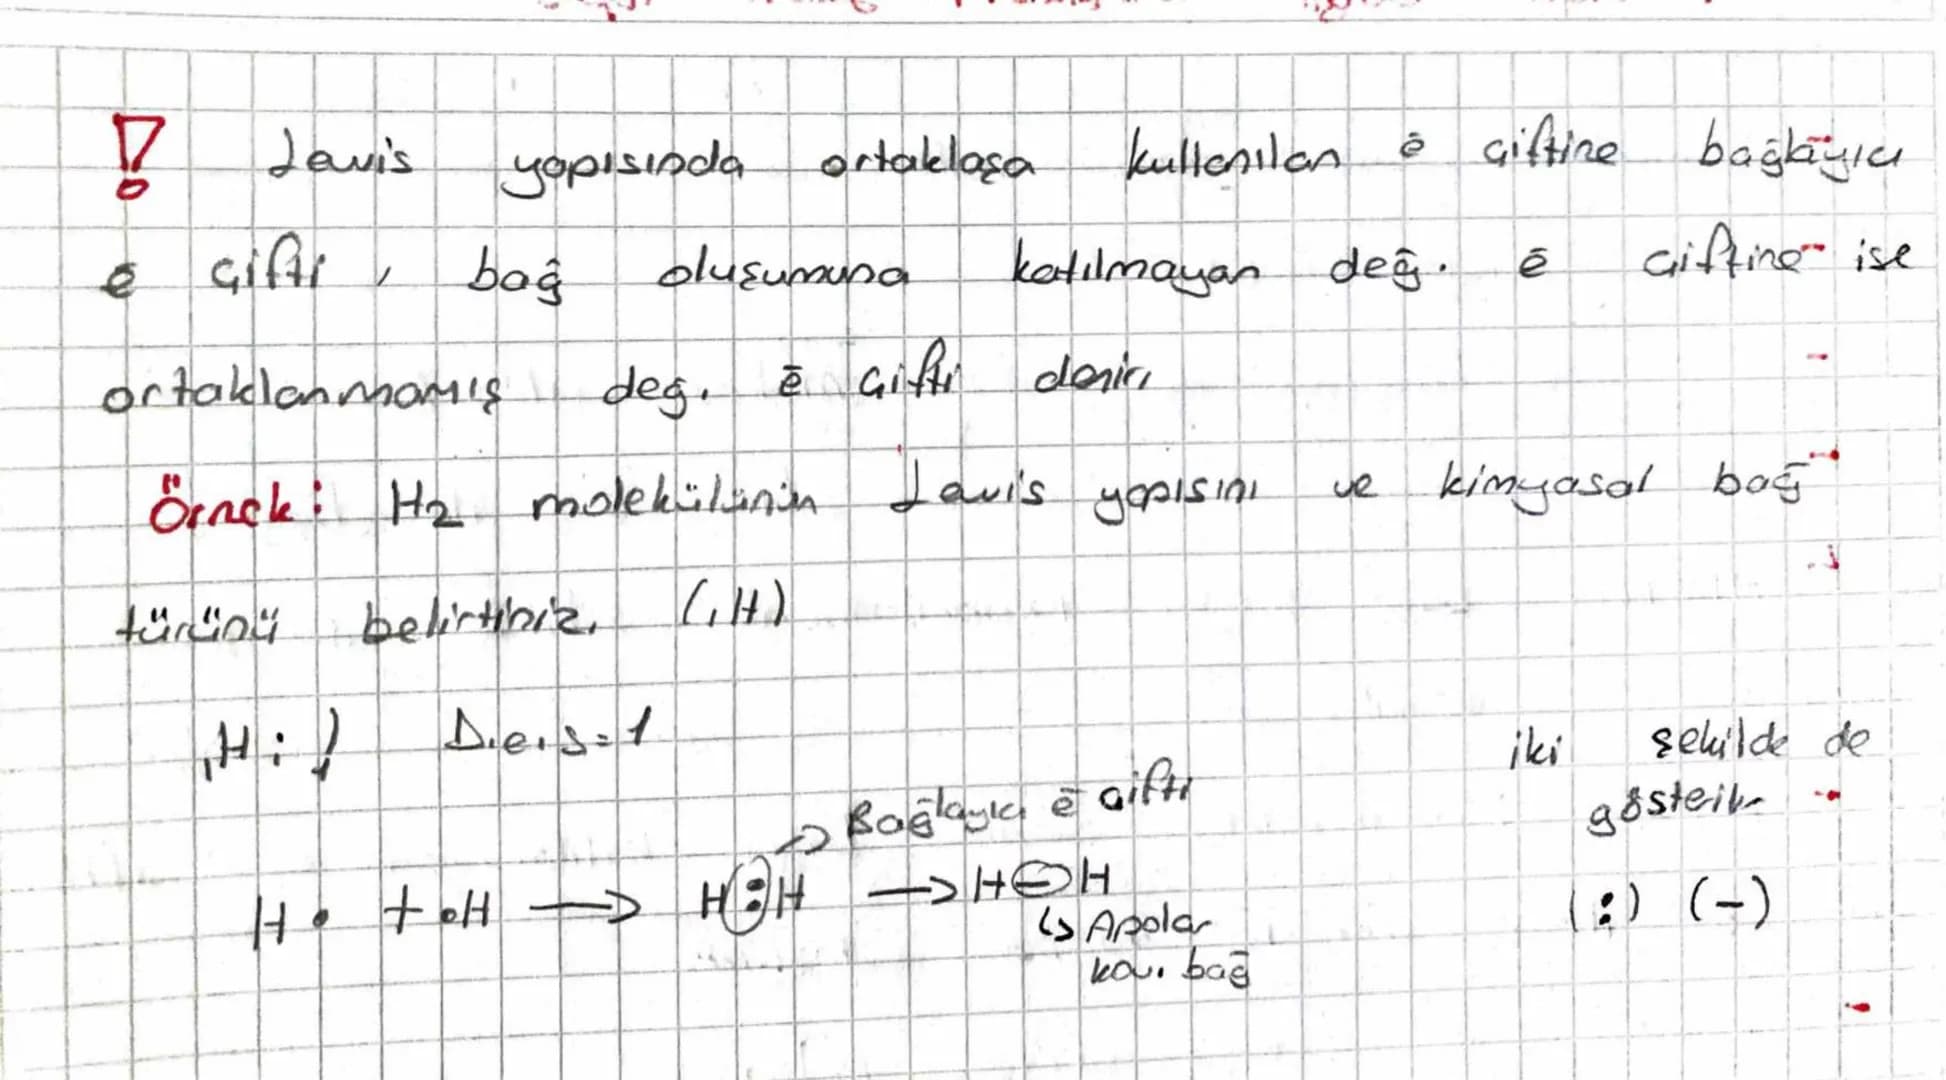 ! Lewis yapısında ortaklaşa kullanılan ē çiftine bağlayıcı
ē çifti, bağ oluşumuna katılmayan değ. ē çiftine ise
ortaklanmamış değ. ē çifti denir.
Örnek: H2 molekülünün Lewis yapısını ve kimyasal bağ
türünü belirtiniz. (₁H)
₁H: ) D.e.s=1
iki şekilde de
gösterilir
Bağlayıcı ē çifti
H• + •H → H:H → H-H
(:) (-)
↳ Apolar
kov. bağ